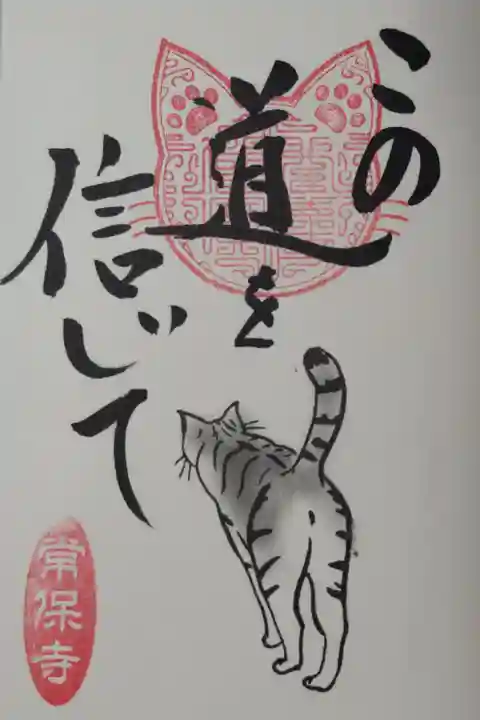 この
道を
信じて
常保寺